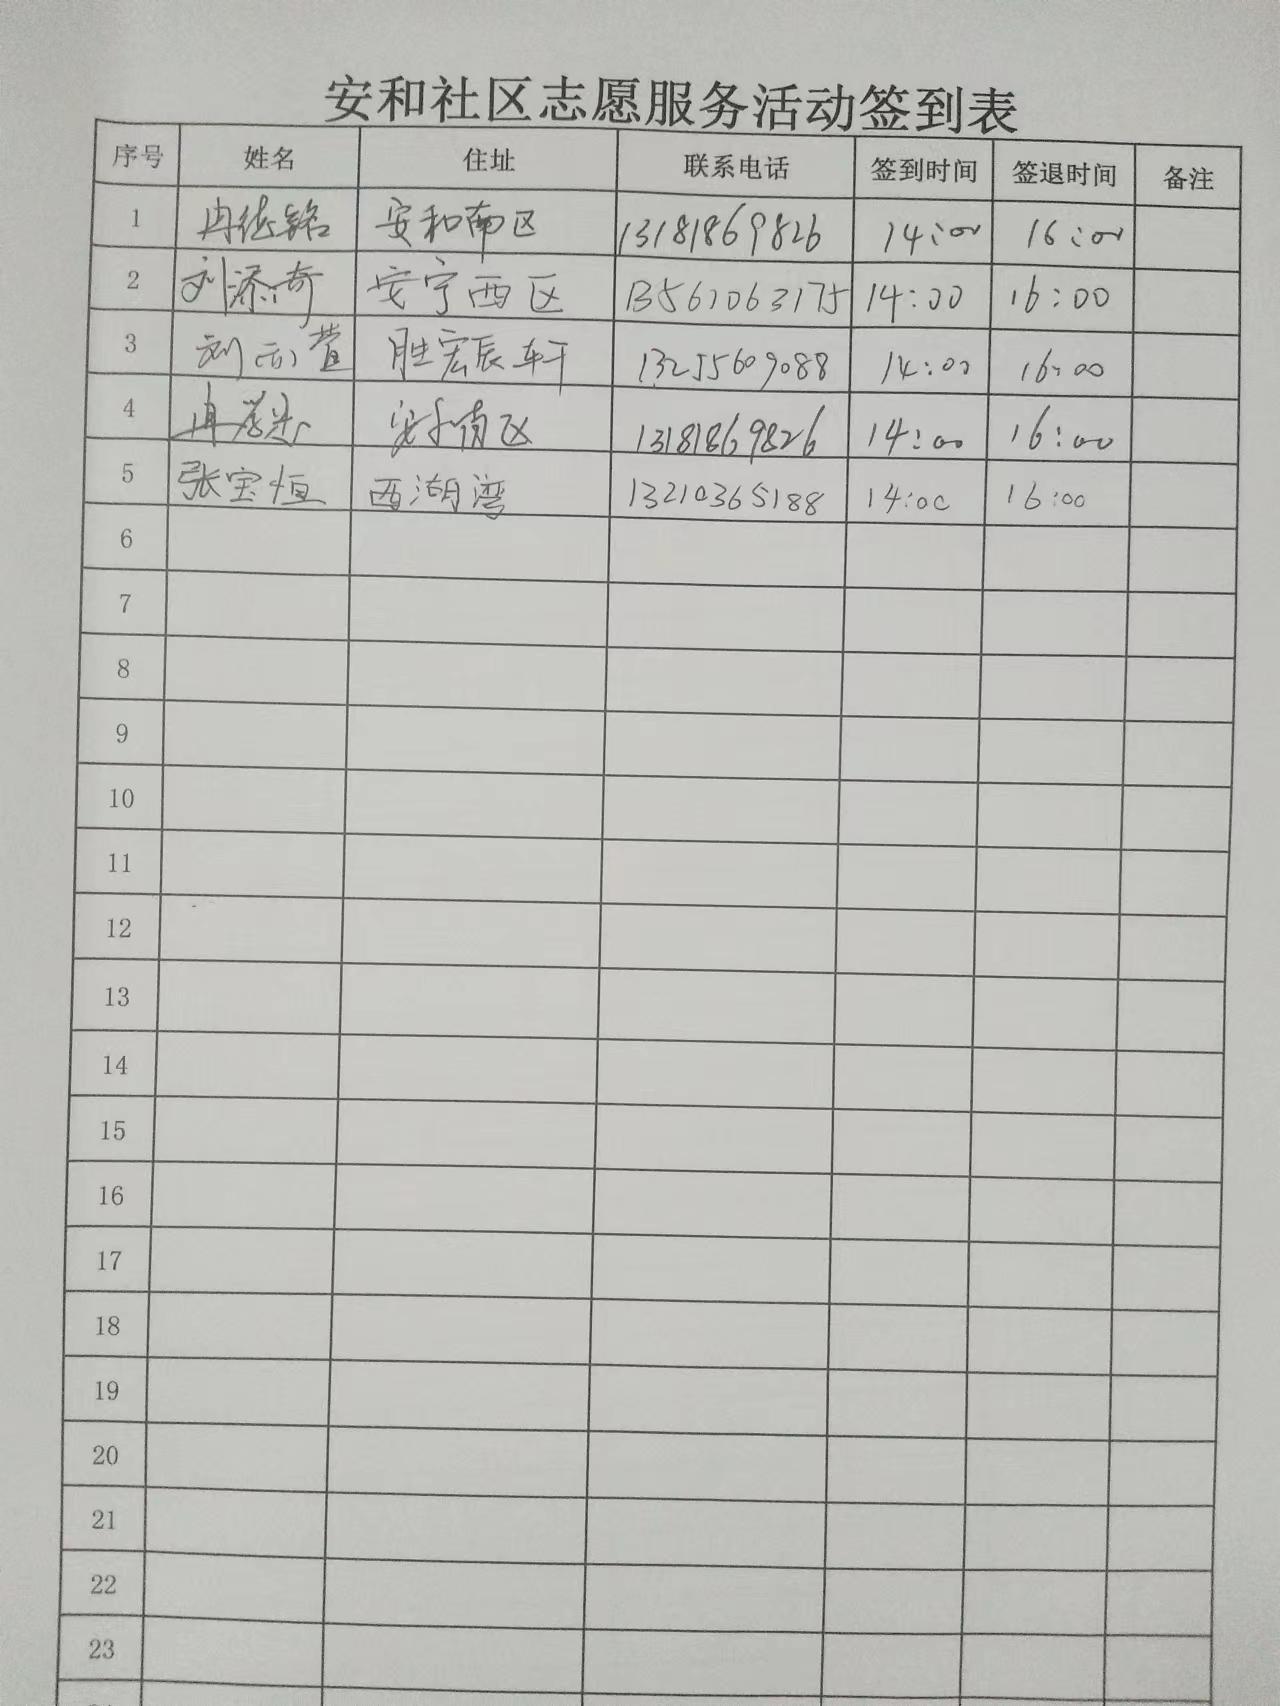 安和社区志愿服务活动签到表
序号 姓名 住址 联系电话 签到时间 签退时间 备注
1 冉德铭 安和南区 13181869826 14:00 16:00
2 刘添奇 安宁西区 13561063175 14:00 16:00
3 刘 萱 胜宏辰轩 13255609088 14:00 16:00
4 冉 安和南区 13181869826 14:00 16:00
5 张宝恒 西湖湾 13210365188 14:00 16:00
6
7
8
9
10
11
12
13
14
15
16
17
18
19
20
21
22
23